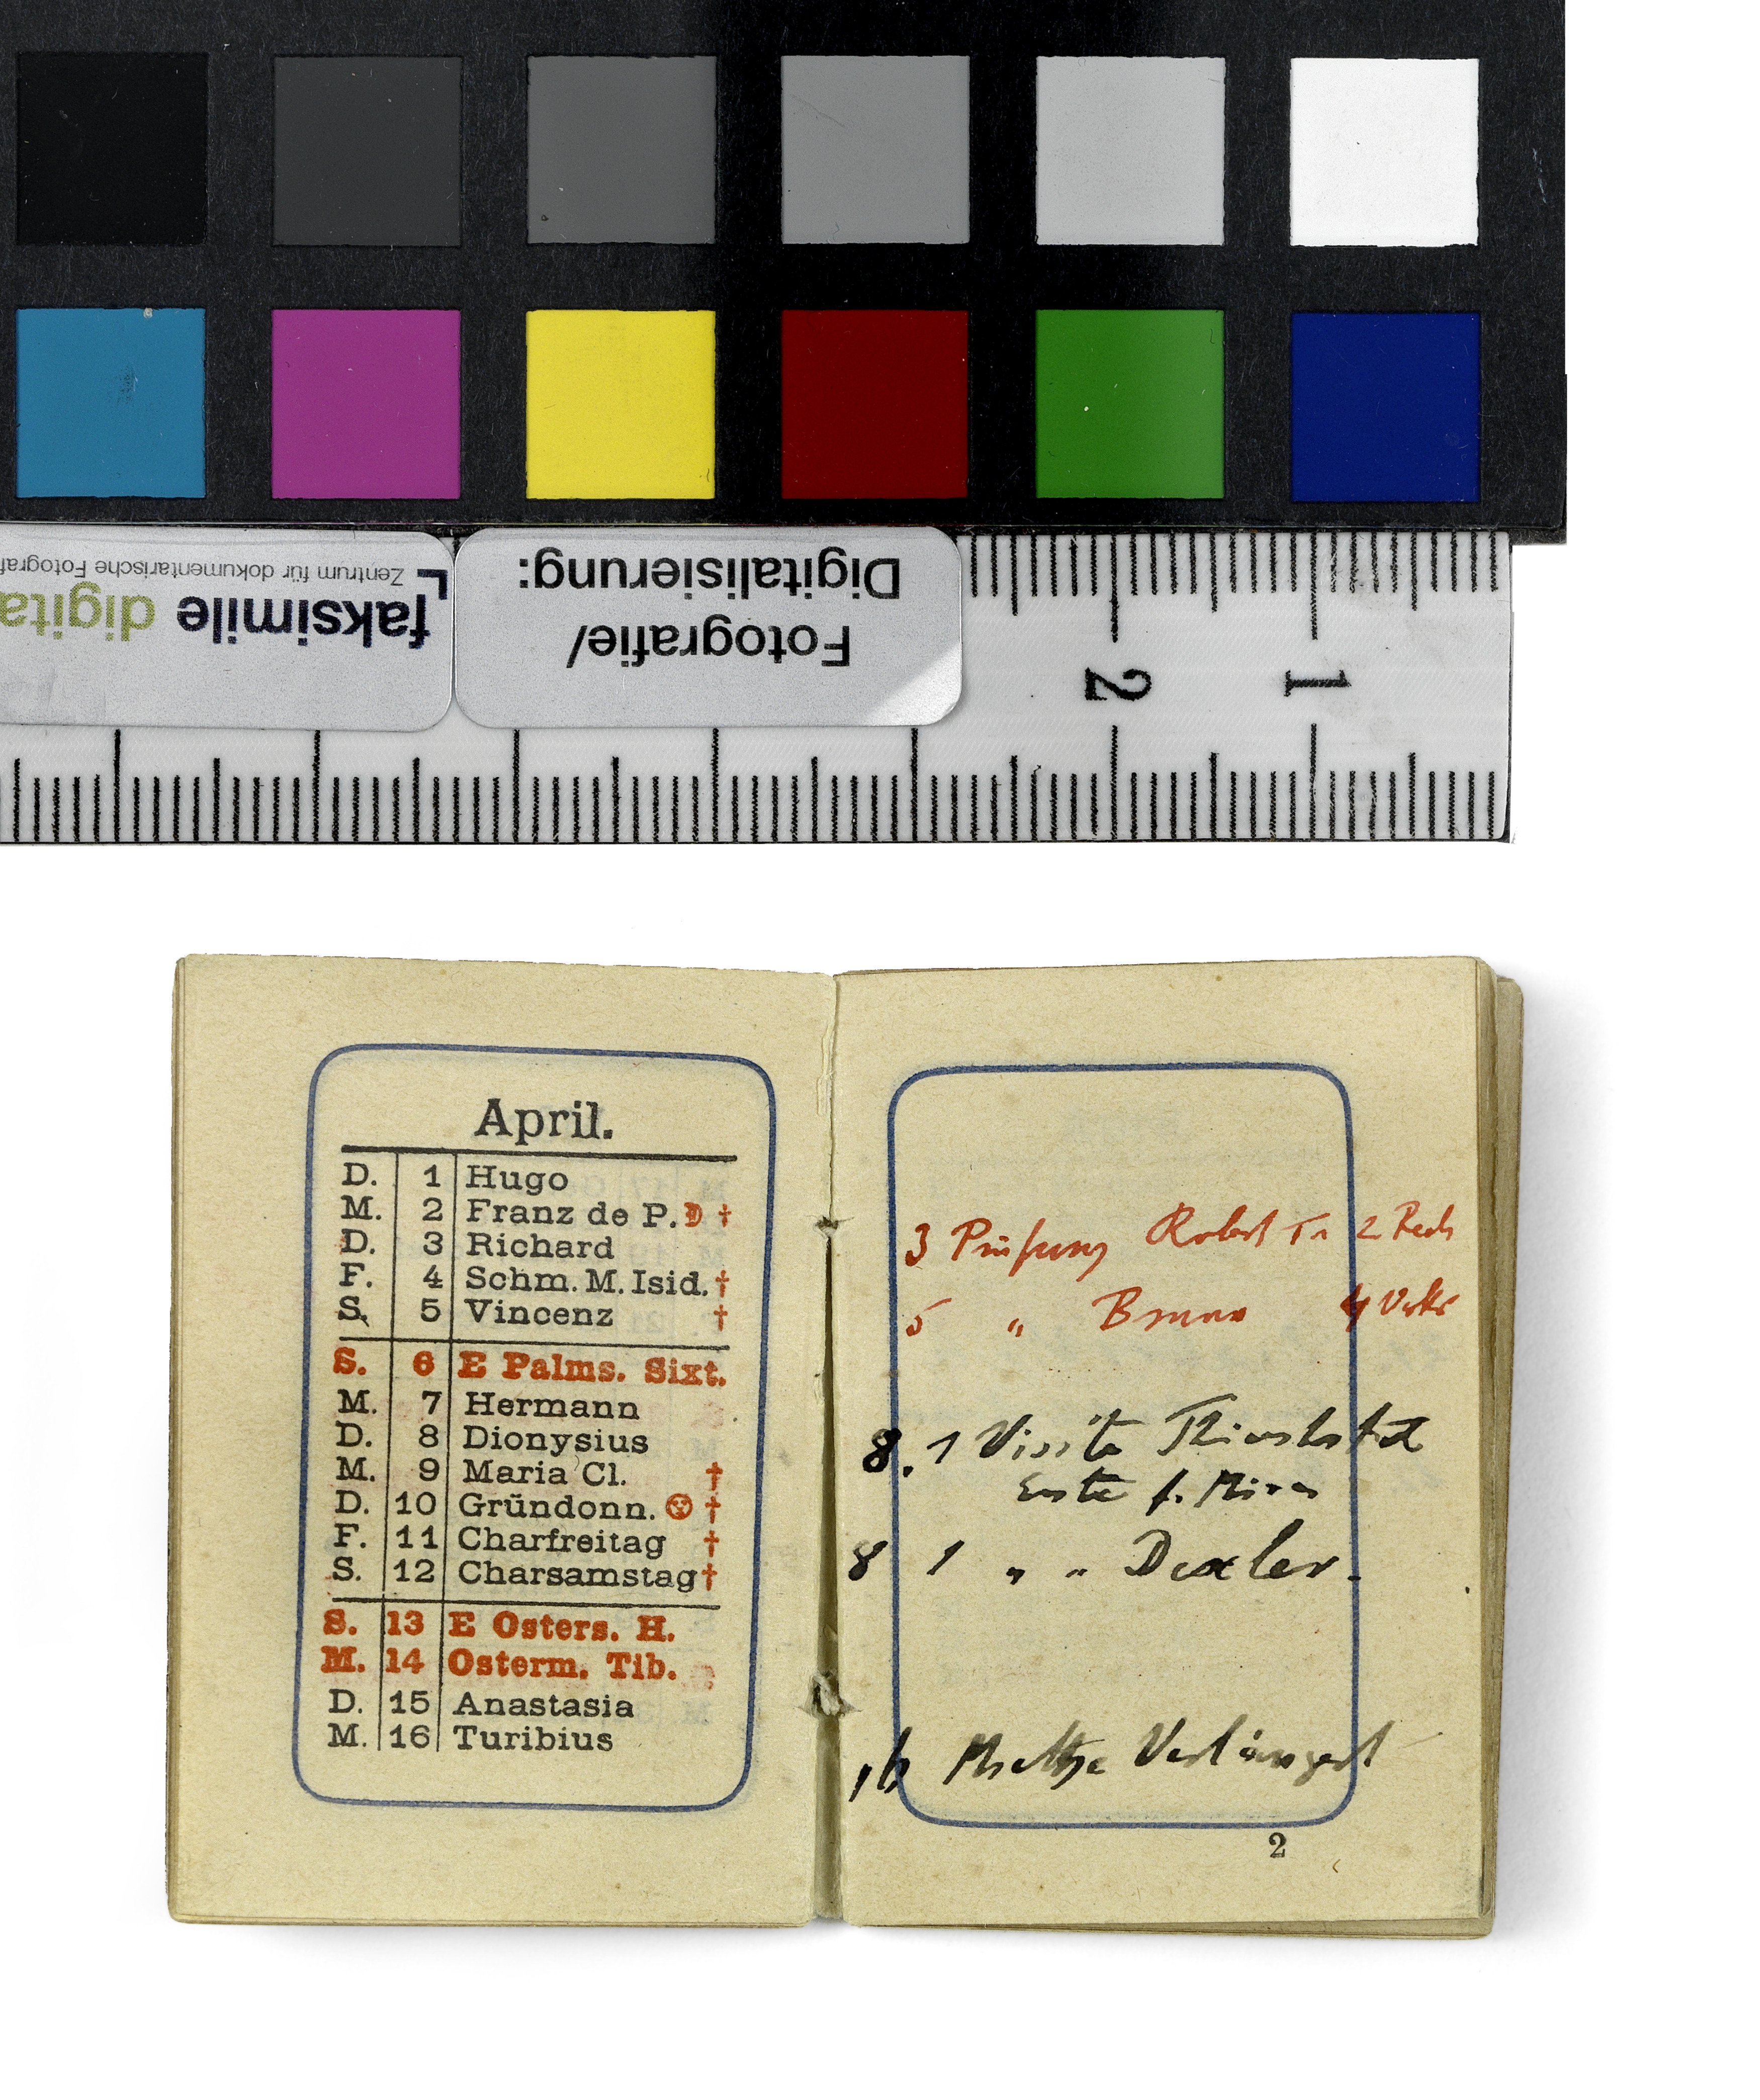 Zentrum für dokumentarische Fotograf
faksimile digita
Fotografie/
Digitalisierung:
2
1
April.
D. 1 Hugo
M. 2 Franz de P. †
D. 3 Richard
F. 4 Schm. M. Isid. †
S. 5 Vincenz †
S. 6 E Palms. Sixt.
M. 7 Hermann
D. 8 Dionysius
M. 9 Maria Cl. †
D. 10 Gründonn. †
F. 11 Charfreitag †
S. 12 Charsamstag †
S. 13 E Osters. H.
M. 14 Osterm. Tib.
D. 15 Anastasia
M. 16 Turibius
3 Prüfung Robert 2
5 " Bruno 4
8. 1 Visite
Erste f.
8 1 " " Dexler.
16 Verlängert
2